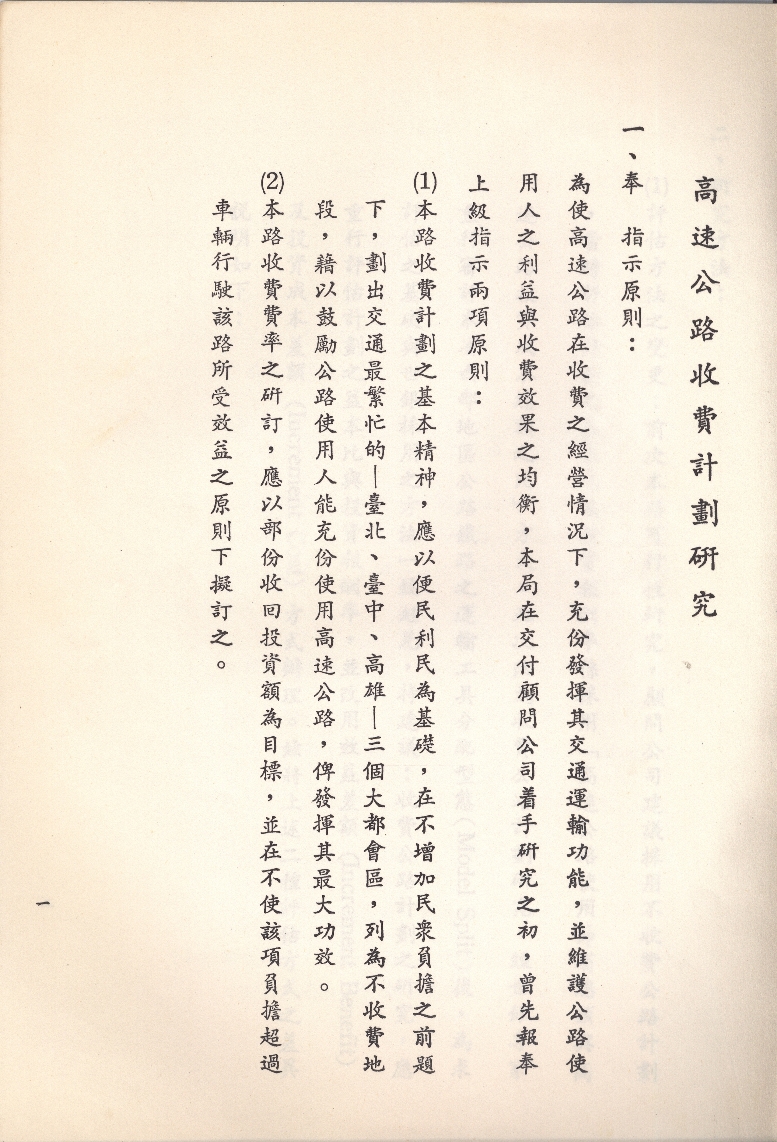 高速公路收費計劃研究
一、奉　指示原則：
為使高速公路在收費之經營情況下，充份發揮其交通運輸功能，並維護公路使
用人之利益與收費效果之均衡，本局在交付顧問公司着手研究之初，曾先報奉
上級指示兩項原則：
(1)本路收費計劃之基本精神，應以便民利民為基礎，在不增加民衆負擔之前題
下，劃出交通最繁忙的—臺北、臺中、高雄—三個大都會區，列為不收費地
段，藉以鼓勵公路使用人能充份使用高速公路，俾發揮其最大功效。
(2)本路收費費率之研訂，應以部份收回投資額為目標，並在不使該項負擔超過
車輛行駛該路所受效益之原則下擬訂之。
一